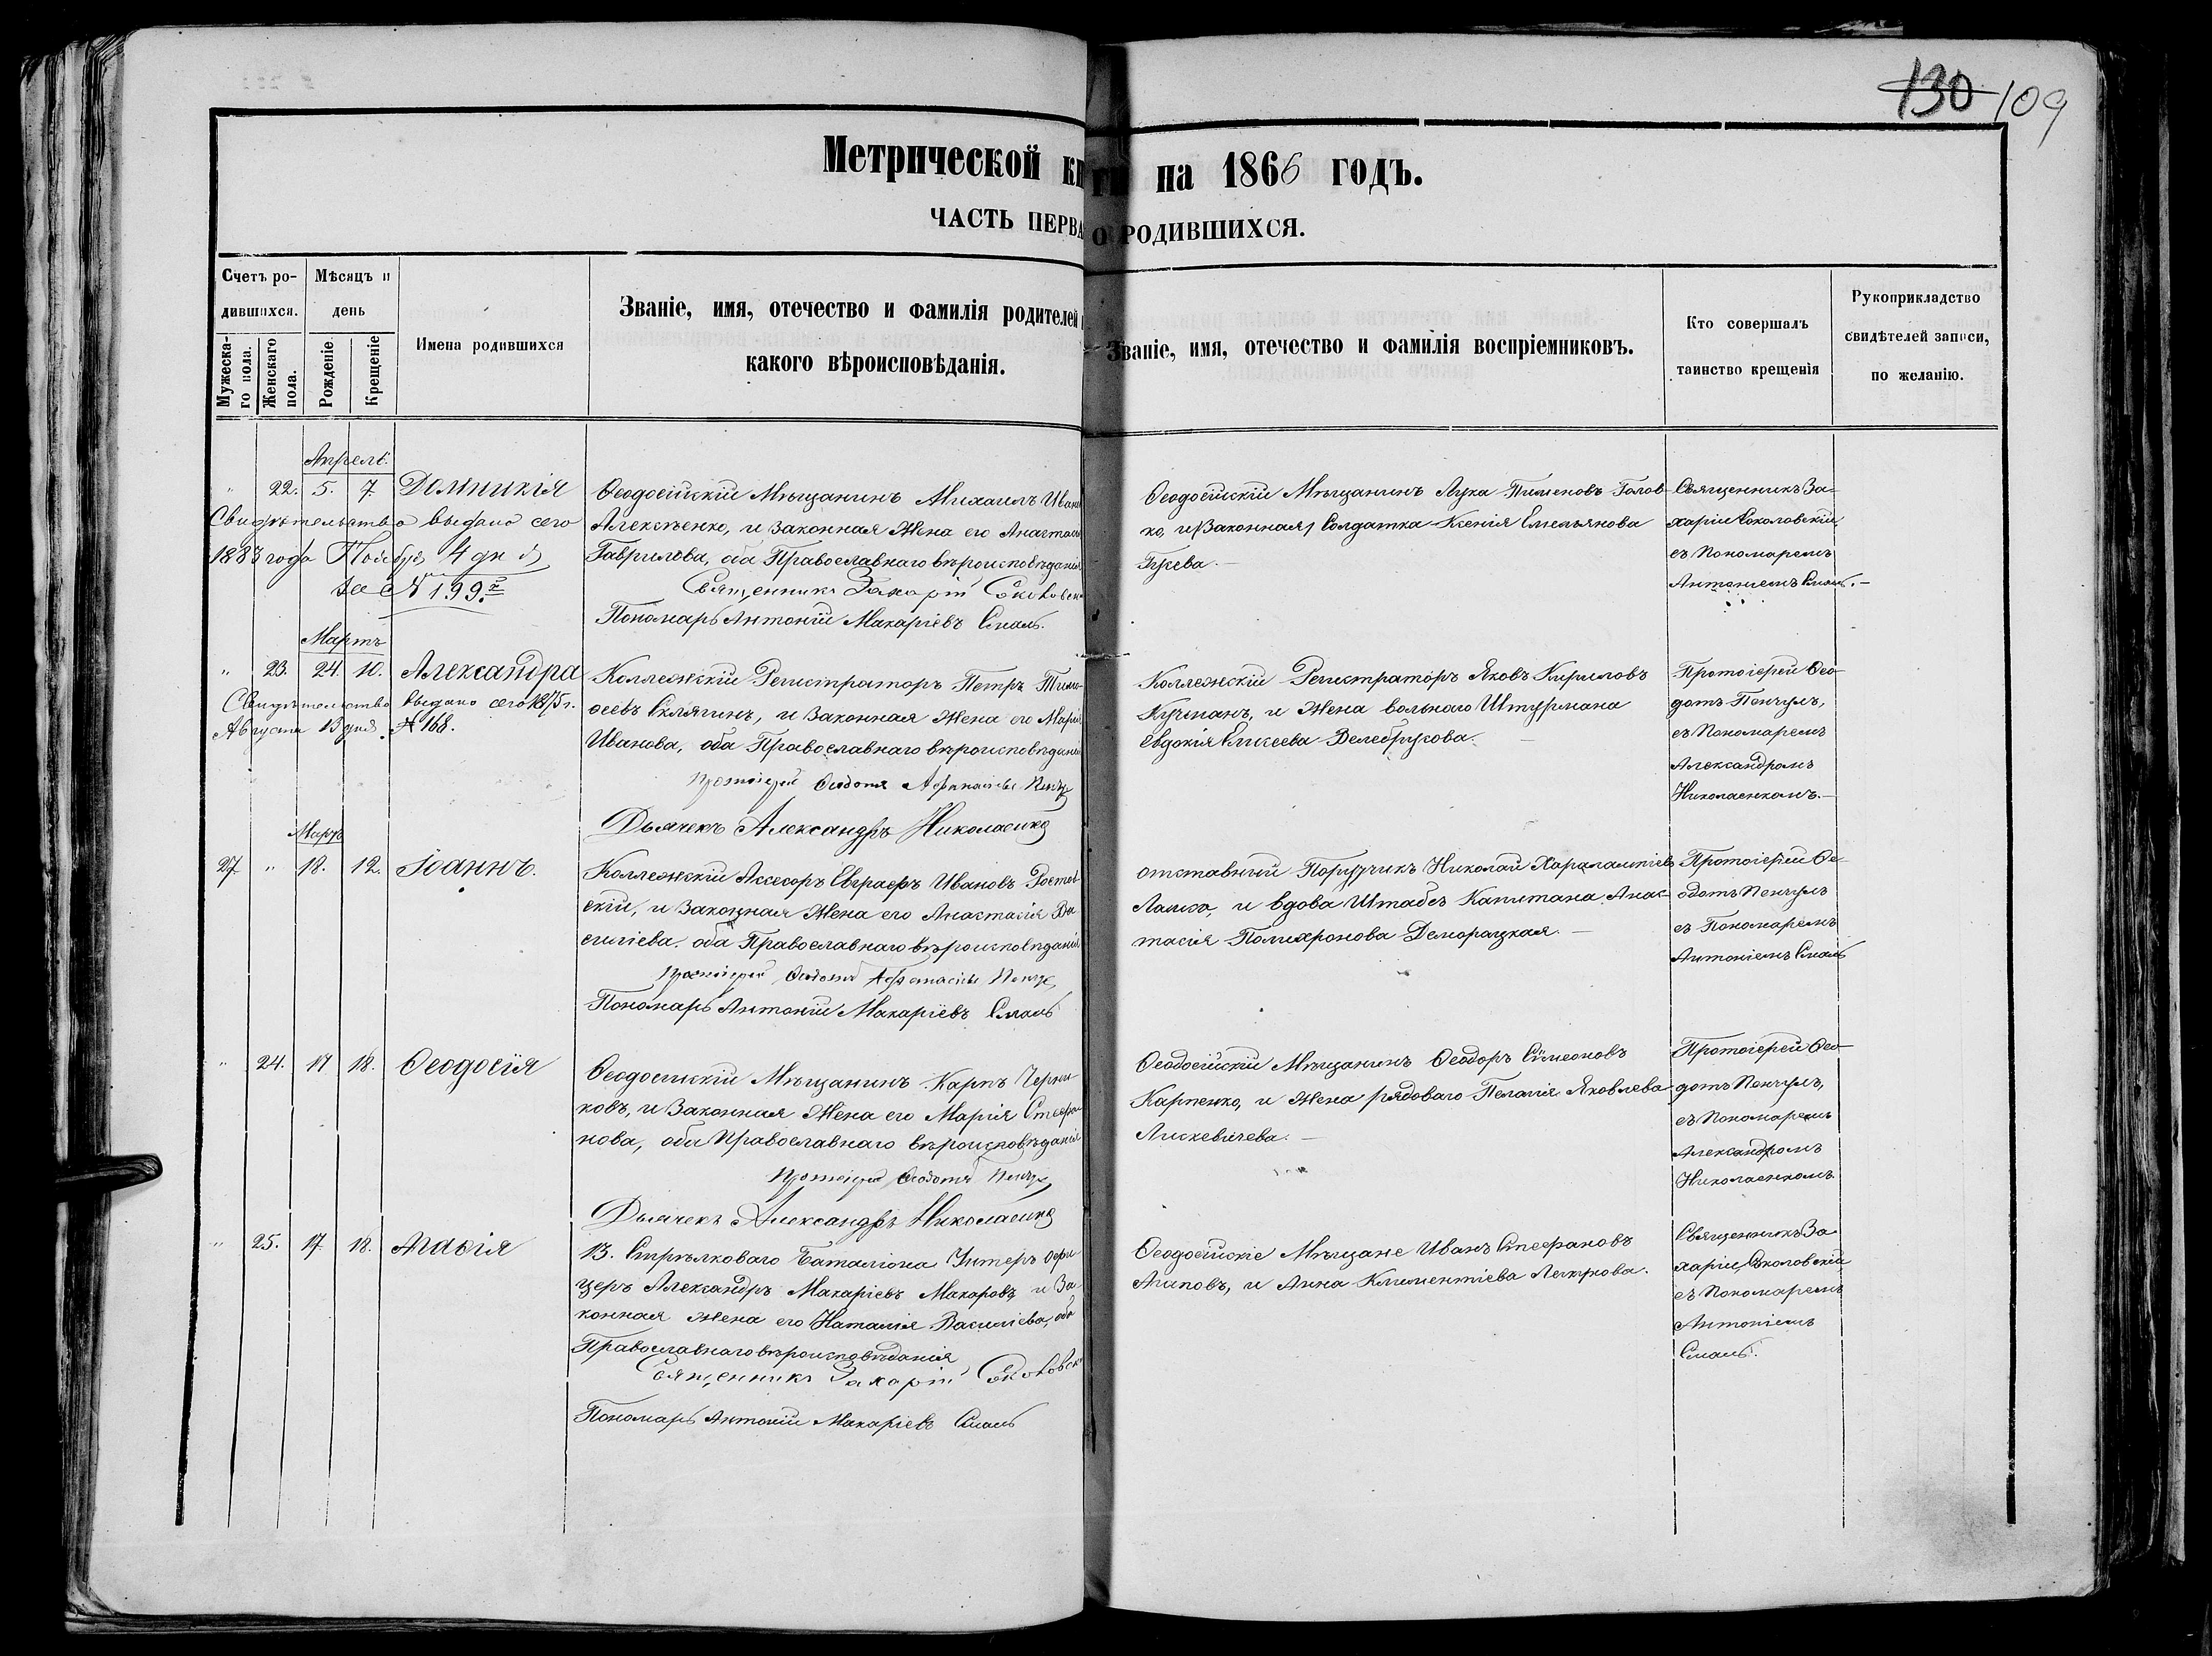 130 109
Метрической кн
ги на 1866 годъ.
ЧАСТЬ ПЕРВА
О РОДИВШИХСЯ.
Счетъ ро-
дившихся.
Мужеска-
го пола.
Женскаго
пола.
Мѣсяцъ и
день
Рожденіе.
Крещеніе
Имена родившихся
Званіе, имя, отечество и фамилія родителей
какого вѣроисповѣданія.
Званіе, имя, отечество и фамилія воспріемниковъ.
Кто совершалъ
таинство крещенія
Рукоприкладство
свидѣтелей записи,
по желанію.
Апрель.
" 22. 5. 7. Домникія
Свидѣтельство выдано сего
1883 года Ноября 4 дня
за № 199.
Ѳеодосійскій Мѣщанинъ Михаилъ Иван
Алексѣенко, и Законная Жена его Анастас
Гаврилова, оба Православнаго вѣроисповѣданія
Священникъ Захарій Соколовск
Пономарь Антоній Макаріевъ Смаль.
Ѳеодосійскій Мѣщанинъ Лука Пименовъ Голов-
ко, и Законная Солдатка Ксенія Емельянова
Священникъ За-
харій Соколовскій,
съ Пономаремъ
Антоніемъ Смаль.—
Мартъ
" 23. 24. 10. Александра
Свидѣтельство выдано сего 1875 г.
Августа 13 дня № 168.
Коллежскій Регистраторъ Петръ Тимо-
ѳеевъ Склягинъ, и Законная Жена его Марія
Иванова, оба Православнаго вѣроисповѣданія
Протоіерей Ѳеодотъ Афанасьевъ Пенчул
Дьячекъ Александръ Николаенко
Коллежскій Регистраторъ Яковъ Кириловъ
Кучманъ, и Жена вольнаго Штурмана
Евдокія Еликеева Делебрукова.
Протоіерей Ѳео-
дотъ Пенчулъ,
съ Пономаремъ
Александромъ
Николаенкомъ.—
Мартъ
27 " 18. 12. Іоаннъ.
Коллежскій Ассесоръ Евграфъ Ивановъ Ростов
скій, и Законная Жена его Анастасія Ва
силіева, оба Православнаго вѣроисповѣданія
Протоіерей Ѳеодотъ Афанасьевъ Пенчул
Пономарь Антоній Макаріевъ Смаль
отставный Поручикъ Николай Харалампіевъ
и вдова Штабсъ Капитана Анас-
тасія Полихронова Деморацкая.
Протоіерей Ѳе-
одотъ Пенчулъ
съ Пономаремъ
Антоніемъ Смаль
" 24. 17 18. Ѳеодосія
Ѳеодосійскій Мѣщанинъ Карпъ Черни
ковъ, и Законная Жена его Марія Стефа
нова, оба Православнаго вѣроисповѣданія
Протоіерей Ѳеодотъ Пенчул
Дьячекъ Александръ Николаенко
Ѳеодосійскій Мѣщанинъ Ѳеодоръ Симеоновъ
Карпенко, и Жена рядоваго Пелагія Яковлева
Лискевичева.
Протоіерей Ѳео-
дотъ Пенчулъ,
съ Пономаремъ
Александромъ
Николаенкомъ.
" 25. 17 18. Марія
13. Стрѣлковаго Баталіона Унтеръ Офи
церъ Александръ Макаріевъ Макаровъ и За
конная Жена его Наталія Василіева, оба
Православнаго вѣроисповѣданія
Священникъ Захарій Соколовск
Пономарь Антоній Макаріевъ Смаль
Ѳеодосійскіе Мѣщане Иванъ Стефановъ
Агиповъ, и Анна Климентіева
Священникъ За
харій Соколовскій,
съ Пономаремъ
Антоніемъ
Смаль.